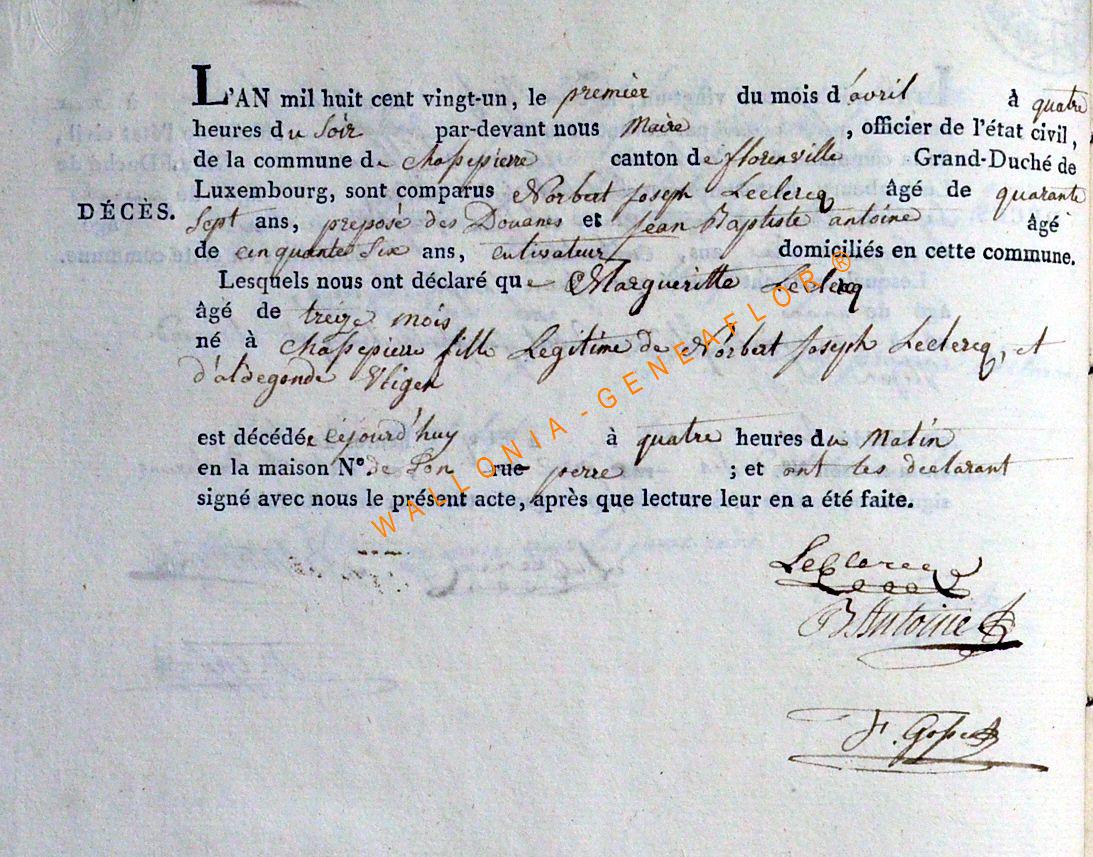 L'AN mil huit cent vingt-un, le premier du mois d'avril à quatre
heures du Soir par-devant nous Maire , officier de l'état civil,
de la commune de chassepierre canton de florenville Grand-Duché de
Luxembourg, sont comparus Norbert Joseph Leclercq âgé de quarante
DÉCÈS.
Sept ans, preposé des Douanes et Jean Baptiste antoine âgé
de cinquante Six ans, cultivateur domiciliés en cette commune.
Lesquels nous ont déclaré que Margueritte Leclercq
âgé de treize mois
né à chassepierre fille Legitime de Norbert Joseph Leclercq, et
d'aldegonde
est décédée cejourd'huy à quatre heures du Matin
en la maison N° de Son rue perre ; et ont les declarant
signé avec nous le présent acte, après que lecture leur en a été faite.
WALLONIA-GENEAFLOR®
Leclercq
B. Antoine